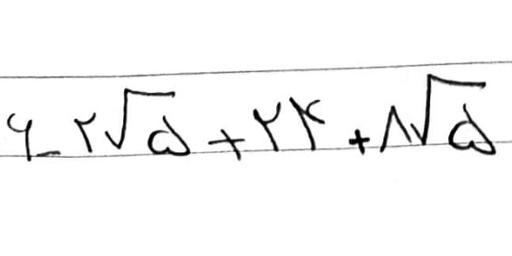 ۶-۲√۵+۲۴+۸√۵